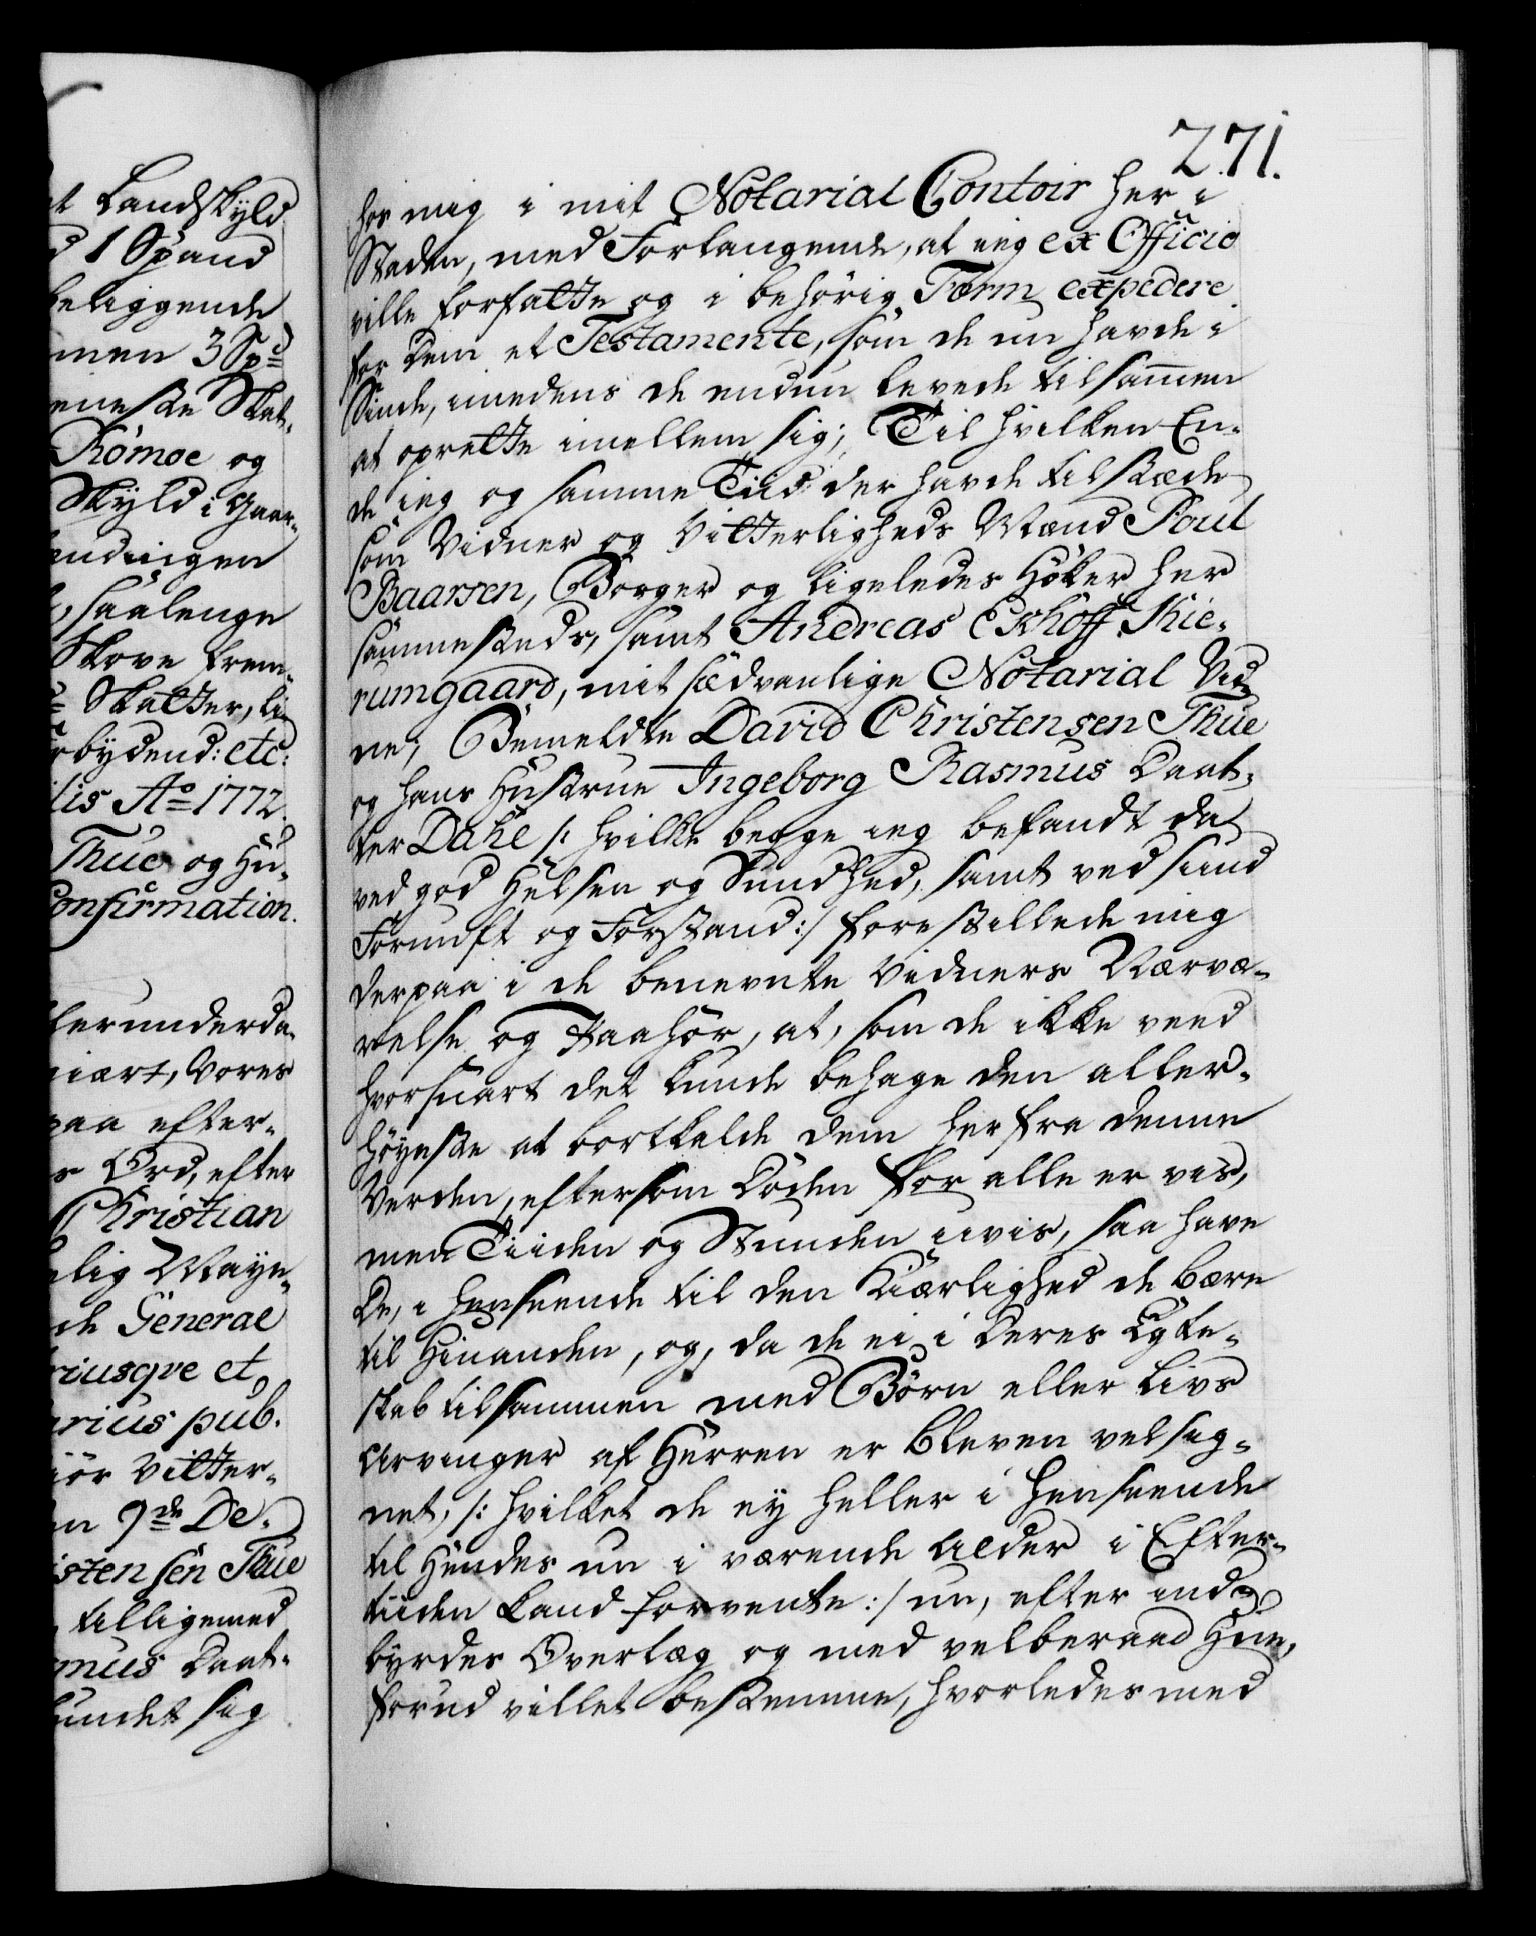 t Landskyld
d 1 Spand
beliggende
men 3 Spd
eneste Skat,
Rømoe og
Skyld i Gaar-
endingen
, saalenge
Skove frem-
Skatter, li-
rbydend: etc:
lis Ao 1772.
Thue og Hu-
Confirmation.
llerunderda-
niært, Vores
paa efter-
s Ord, efter
Christian
lig Maye-
de General
riusqve et
arius pub.
iör Vitter-
en 9de De-
istensen Thue
tilligemed
mus Daat-
undet sig
271.
hos mig i mit Notarial Contoir her i
Staden, med Forlangende, at ieg ex Officio
ville forfatte og i behörig Form expedere
for Dem et Testamente, som de nu havde i
Sinde, imedens de endnu levede tilsammen
at oprette imellem sig; Til hvilken En-
de ieg og samme Tiid der havde tilstæde
som Vidner og Vitterligheds Mænd Poul
Baarsen, Borger og ligeledes Höker her
sammesteds, samt Andreas Ekhoff Kie-
rumgaard, mit sædvanlige Notarial Vid-
ne; Bemeldte David Christensen Thue
og hans Hustrue Ingeborg Rasmus Daat-
ter Dahl /: hvilke begge ieg befandt da
ved god Helsen og Sundhed, samt ved sund
Fornuft og Forstand :/ forestillede mig
derpaa i de benevnte Vidners Nærvæ-
relse og Paahör, at, som de ikke veed
hvorsnart det kunde behage den aller-
höyeste at bortkalde dem herfra denne
Verden, eftersom Döden for alle er vis,
men Tiiden og Stunden uvis, saa have
De, i henseende til den Kiærlighed de bære
til Hinanden, og, da de ei i Deres Egte-
skab tilsammen med Börn eller Livs
Arvinger af Herren er bleven velsig-
net, /: hvilket de ey heller i Henseende
til Hendes nu i værende Alder i Efter-
tiiden kand forvente :/ nu, efter ind-
byrdes Overlæg og med velberaad Hue,
forud villet bestemme, hvorledes med